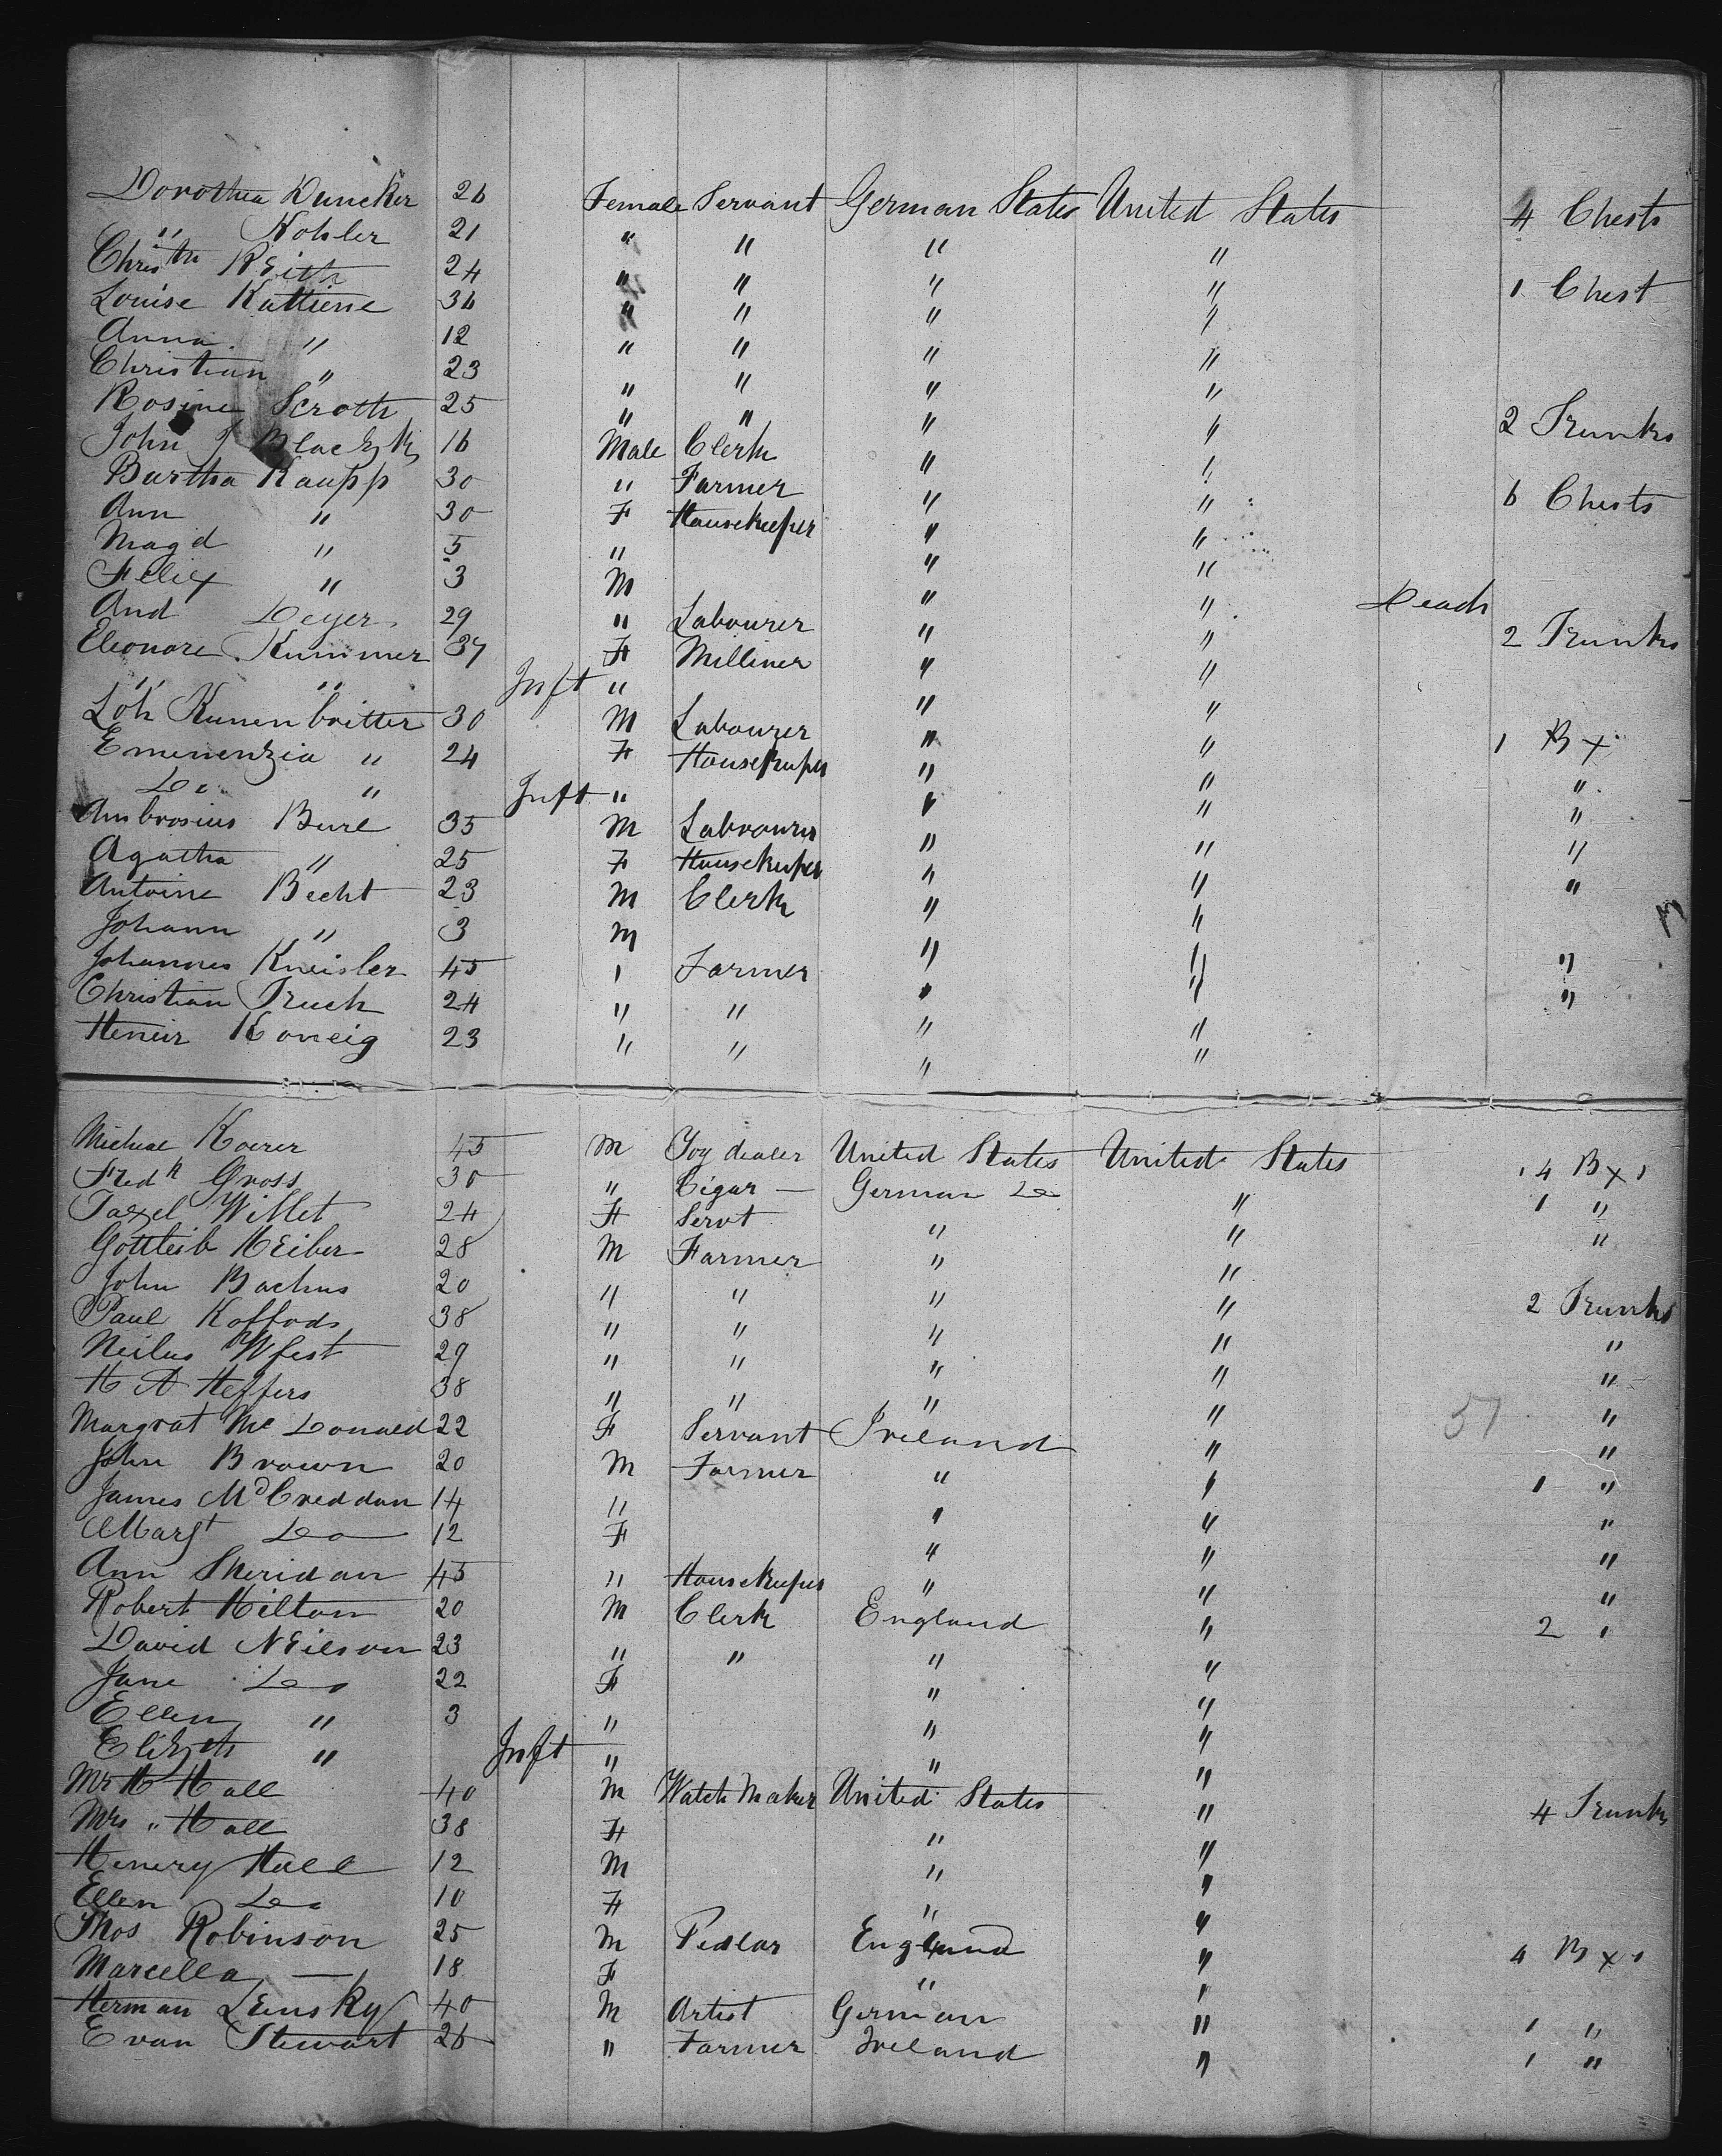 Dorothea Duncker 26 Female Servant German States United States 4 Chests
" Kohler 21 " " " "
Christn Keith 24 " " " " 1 Chest
Louise Kattiene 36 " " " "
Anna " 12 " " " "
Christian " 23 " " " "
Rosine Scroth 25 " " " " 2 Trunks
John J 16 Male Clerk " "
Bartha Kaupp 30 " Farmer " " 6 Chests
Ann " 30 F Housekeeper " "
Magd " 5 " " "
Felix " 3 M " " Death
And Deyer 29 " Labourer " " 2 Trunks
Eleonore Kummer 37 F Milliner " "
" " Inft " " "
Joh Kunenbritter 30 M Labourer " " 1 Bx
Emenenzia " 24 F Housekeeper " " "
Do " Inft " " " "
Ambrosius Burl 35 M Labrourer " " "
Agatha " 25 F Housekeeper " " "
Antoine Becht 23 M Clerk " "
Johann " 3 M " "
Johannes Kneisler 45 " Farmer " " "
Christian Truch 24 " " " " "
Heneir Koneig 23 " " " "
Micheae Koerer 45 M Toy dealer United States United States 4 Bxs
Fredk Gross 30 " Cigar — German Do " 1 "
Willet 24 F Servt " " "
Gottleib Keiber 28 M Farmer " "
John Bachus 20 " " " " 2 Trunks
Paul Koffods 38 " " " " "
Neilus Wfest 29 " " " " "
H A Heffers 38 " " " " "
Margrat Mc Donald 22 F Servant Ireland " 51 "
John Brown 20 M Farmer " " 1 "
James McCreddan 14 " " " "
Margt Do 12 F " " "
Ann Sheridan 45 " Housekeeper " " "
Robert Hilton 20 M Clerk England " 2 "
David Neilson 23 " " " "
Jane Do 22 F " "
Ellen " 3 " " "
Elizth " Inft " " "
Mr H Hall 40 M Watch Maker United States " 4 Trunks
Mrs " Hall 38 F " "
Henery Hall 12 M " "
Ellen Do 10 F " "
Thos Robinson 25 M Pedlar England " 4 Bxs
Marcella — 18 F " "
Herman Lensky 40 M Artist German " 1 "
Evan Stewart 26 " Farmer Ireland " 1 "